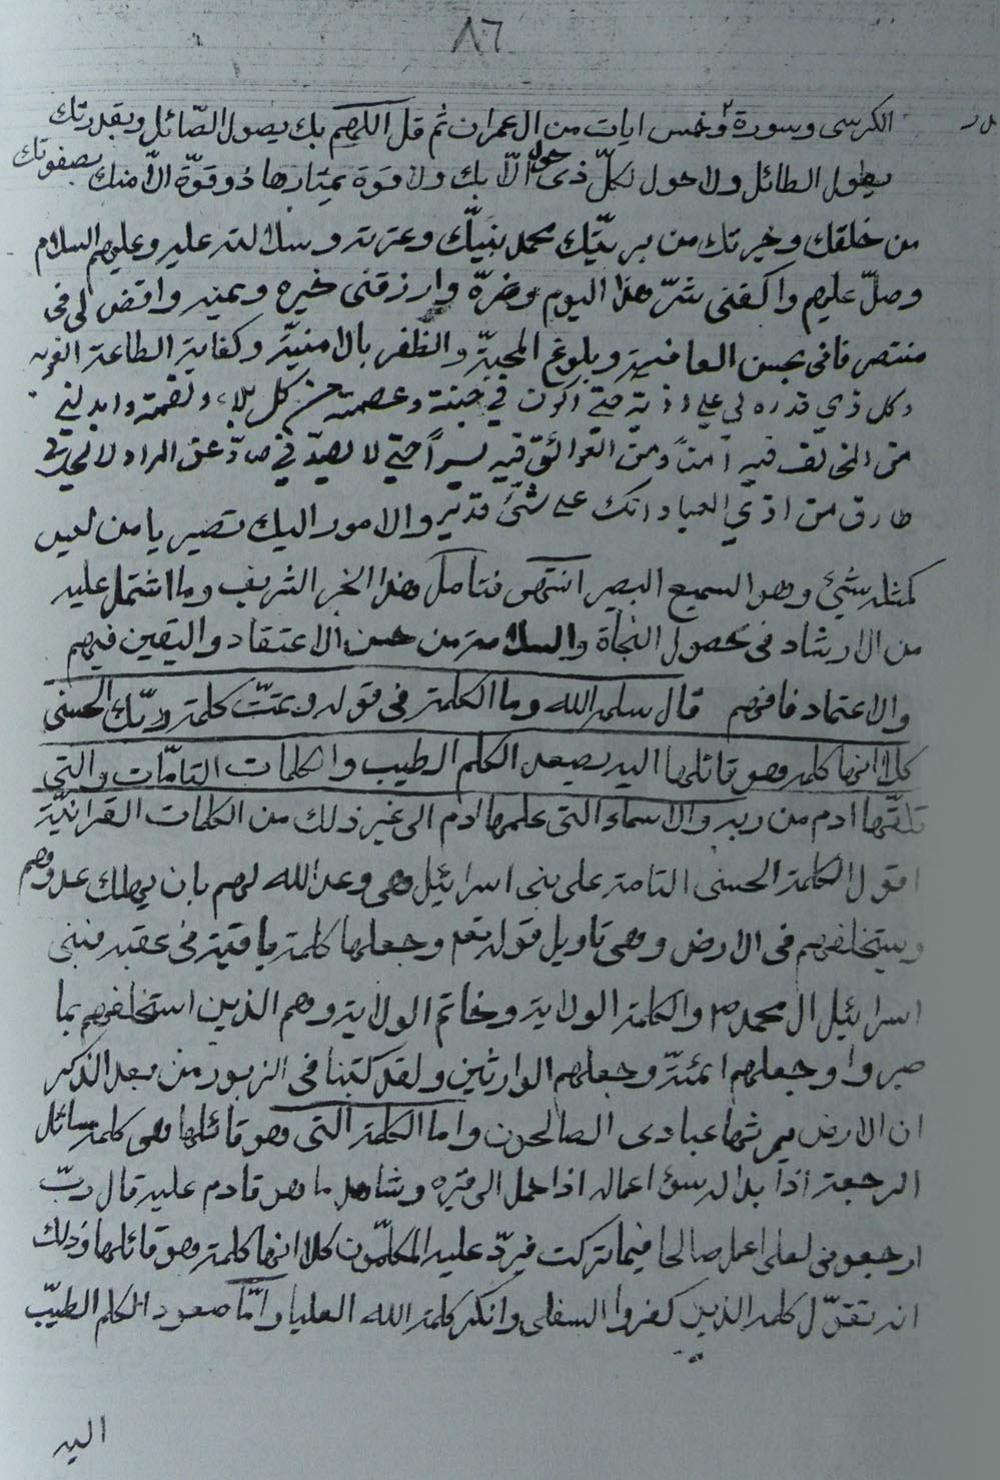 ٨٦
الكرسى وسورة وخمس ايات من ال عمران ثم قل اللهم بك يصول الصّائل وبقدرتك
يطول الطائل ولا حول لكلّ ذى حول الّا بك ولا قوة يمتارها ذو قوّة الّا منك بصفوتك
من خلقك وخيرتك من بريّتك محمد نبيّك وعترته وسلالته عليه وعليهم السلام
وصلّ عليهم واكفنى شرّ هذا اليوم وضرّه وارزقنى خيره ويمنه واقض لى فى
منتصرفاتى بحسن العافية وبلوغ المحبّة والظفر بالامنيّة وكفاية الطاغية الغويه
وكل ذي قدره لي على اذية حتى اكون في جنة وعصمة من كل بلاء ونقمة وابدلني
من المخاوف فيه امنا ومن العوائق فيه يسراً حتى لا يصدّني صادّ عن المراد ولا يحل بي
طارق من اذي العباد انك على شئ قدير والامور اليك تصير يا من ليس
كمثله شئ وهو السميع البصير انتهى فتأمل هذا الخبر الشريف وما اشتمل عليه
من الارشاد فى حصول النجاة والسلامة من حسن الاعتقاد واليقين فيهم
والاعتماد فافهم قال سلمه الله وما الكلمة فى قوله وتمّت كلمة ربّك الحسنى
كلا انها كلمه وهو قائلها اليه يصعد الكلم الطيب والكلمات التامّات والتى
تلقّيها ادم من ربه والاسماء التى علمها ادم الى غير ذلك من الكلمات القرانيّة
اقول الكلمة الحسنى التامة على بنى اسرائيل هى وعد الله لهم بان يهلك عدوهم
ويستخلفهم فى الارض وهى تاويل قوله تعه وجعلها كلمة باقية فى عقبه فبنى
اسرائيل ال محمد ص والكلمة الولاية وخاتم الولاية وهم الذين استخلفهم بما
صبروا وجعلهم ائمّة وجعلهم الوارثين ولقد كتبنا فى الزبور من بعد الذكر
ان الارض يرثها عبادى الصالحون واما الكلمة التى وهو قائلها وهى كلمة سائل
الرجعة اذا بدا له سؤ اعماله اذا حمل الى قبره وشاهد ما هو قادم عليه قال ربّ
ارجعونى لعلى اعمل صالحا فيما تركت فيردّ عليه المكلّمون كلا انها كلمة وهو قائلها وذلك
انه تقوّل كلمه الذين كفروا السفلى وانكر كلمة الله العليا وامّا صعود الكلم الطيّب
اليه